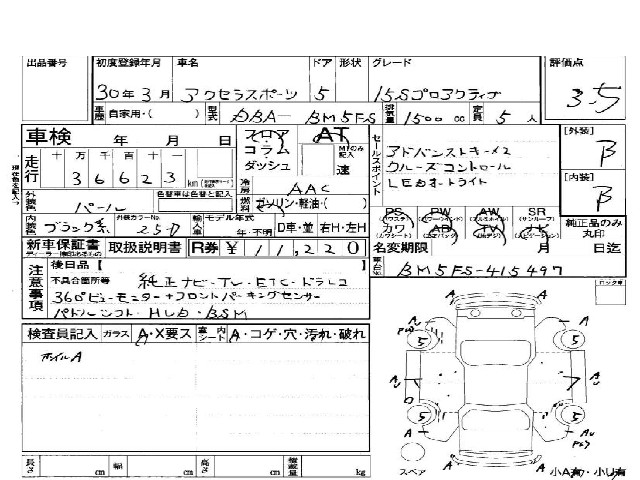 出品番号 初度登録年月 車名 ドア 形状 グレード 評価点
30年3月 アクセラスポーツ 5 15Sプロアクティブ 3.5
車歴 自家用・( ) 型式 DBA-BM5FS 排気量 1500 cc 定員 5 人
車検 年 月 日 フロア AT
コラム MTのみ記入
ダッシュ 速
走行 十 万 千 百 十 一
3 6 6 2 3 km
セールスポイント
アドバンストキー×2
クルーズコントロール
LEDオートライト
[外装] B
[内装] B
外装色 パール 色替車は色替と記入
冷房 AAC
燃料 ガソリン・軽油・( )
内装色 ブラック系 外装カラーNo. 25D 輸入車 モデル年式 年・不明 D車・並 右H・左H
PS PW AW SR
カワ AB TV ナビ
純正品のみ丸印
新車保証書 取扱説明書 R券 ¥11,220
ディーラー捺印あるもの
名変期限 月 日迄
車台No. BM5FS-415497
注意事項 後日品【
不具合箇所等 純正ナビ・TV・ETC・ドラレコ
360ビューモニター・フロントパーキングセンサー
パドルシフト・HUD・BSM
検査員記入 ガラス A・X要ス 車内シート A・コゲ・穴・汚れ・破れ
ホイルA
長さ cm 幅 cm 高さ cm 積載量 kg
スペア
小A有・小U有